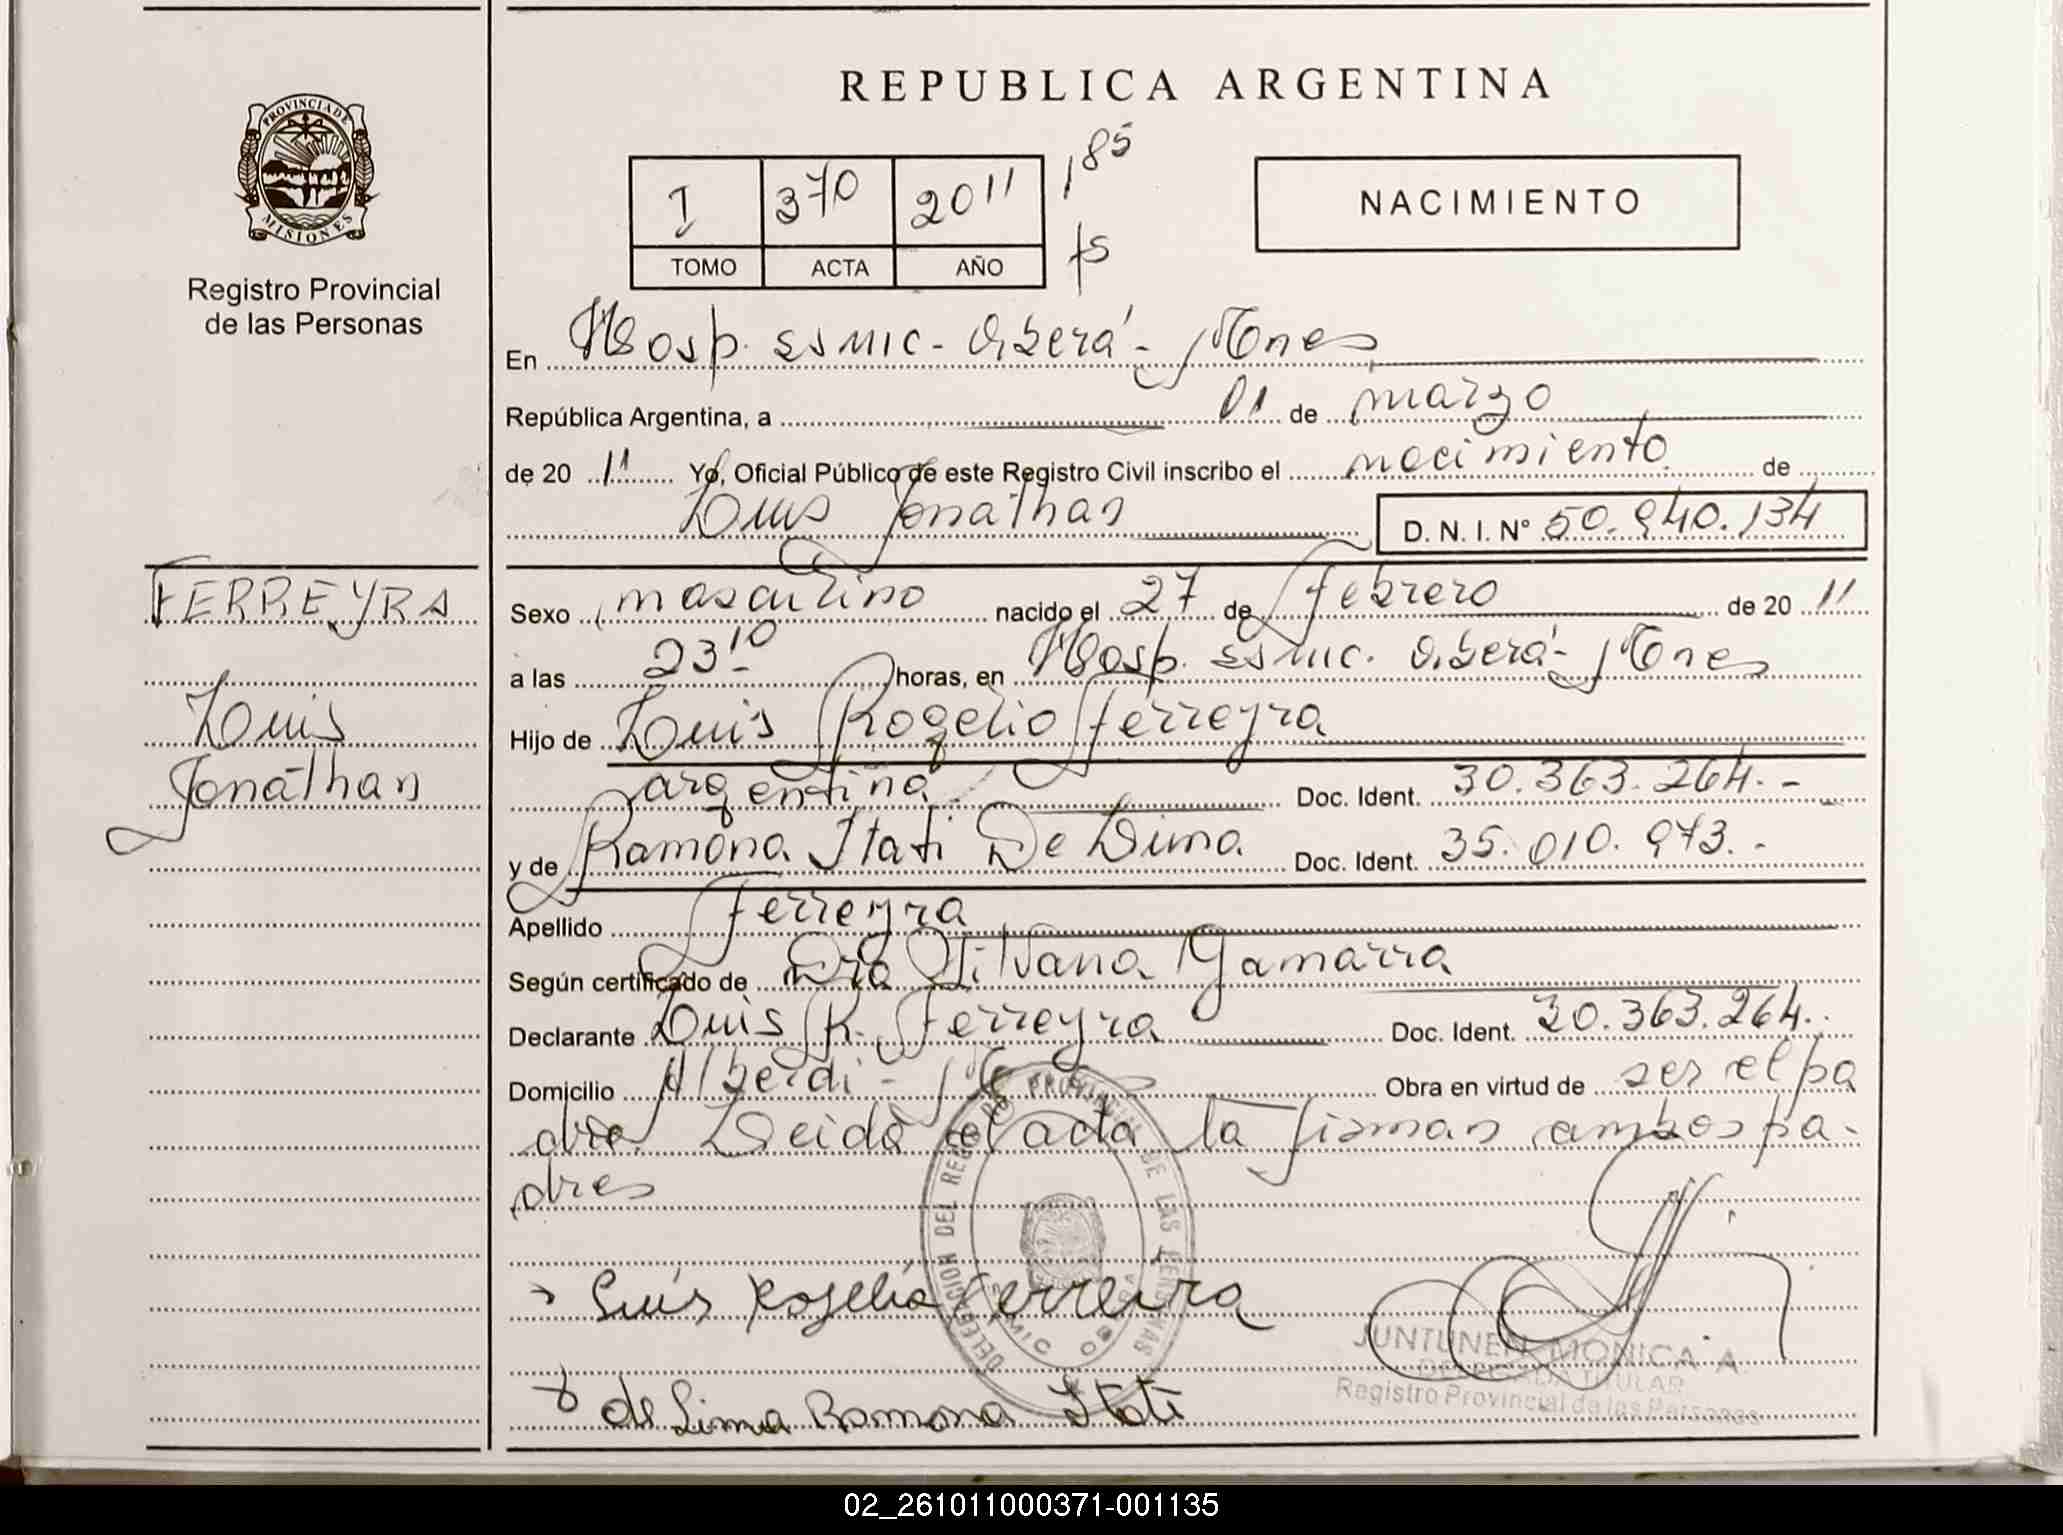 REPUBLICA ARGENTINA
PROVINCIA DE MISIONES
Registro Provincial
de las Personas
I 370 2011 185
TOMO ACTA AÑO fs
NACIMIENTO
En Hosp. SSMIC - Oberá - Mnes
República Argentina, a 01 de marzo
de 20 11 Yo, Oficial Público de este Registro Civil inscribo el nacimiento de
Luis Jonathan D. N. I. N° 50.940.134
FERREYRA
Luis
Jonathan
Sexo masculino nacido el 27 de febrero de 20 11
a las 23 10 horas, en Hosp. SSMIC. Oberá - Mnes
Hijo de Luis Rogelio Ferreyra
argentina Doc. Ident. 30.363.264.-
y de Ramona Itati De Lima Doc. Ident. 35.010.973.-
Apellido Ferreyra
Según certificado de Dra Silvana Gamarra
Declarante Luis R. Ferreyra Doc. Ident. 30.363.264..
Domicilio Alberdi - Obra en virtud de ser el pa
dre Leida el acta la firman ambos pa-
dres
DELEGACION DEL REGISTRO PROVINCIAL DE LAS PERSONAS
Luis Rogelio Ferreira
de Lima Ramona Itati
JUNTUNEN MONICA A.
DELEGADA TITULAR
Registro Provincial de las Personas
02_261011000371-001135